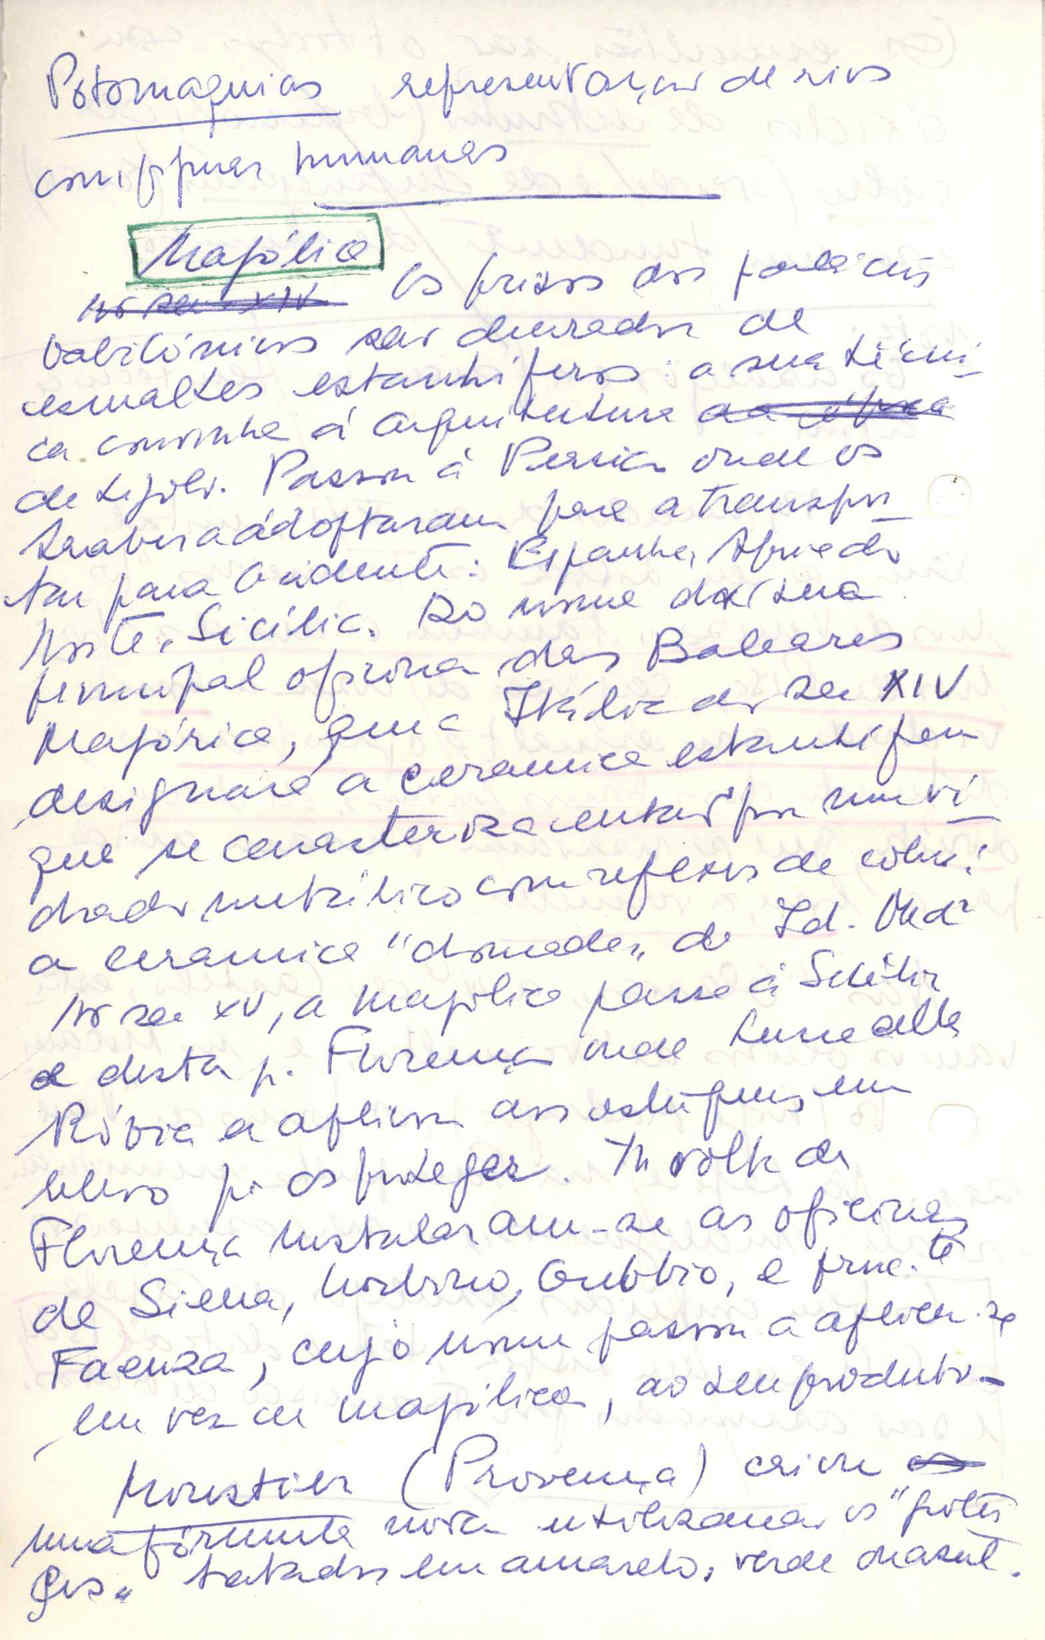 Potomaquias representações de rios
com figuras humanas
Majólica
no sec. XIV Os frisos dos palácios
babilónicos são decorados de
esmaltes estaníferos: a sua técni-
ca convinha á arquitectura
de tijolo. Passou á Persia onde os
árabes a adoptaram para a transpor-
tar para Ocidente: Espanha, Africa do
Norte, Sicília. Do nome da sua
principal oficina das Baleares
Majórica, que a Itália do sec XIV
designará a ceramica estanifera
que se caracterizava então por um vi-
drado metálico com reflexos de cobre:
a ceramica "dourada" da Id. Med.
No sec XV, a majólica passa á Sicília
e desta p. Florença onde Lucca della
Róbia a aplicou aos estuques em
relevo p. os proteger. Á volta de
Florença instalaram-se as oficinas
de Siena, Urbino, Gubbio, e princ.te
Faenza, cujo nome passou a aplicar-se
em vez de majólica, ao seu produto-
Moustier (Provença) criou
uma fórmula nova utilizando os "grotes
cos" tratados em amarelo, verde ou azul.